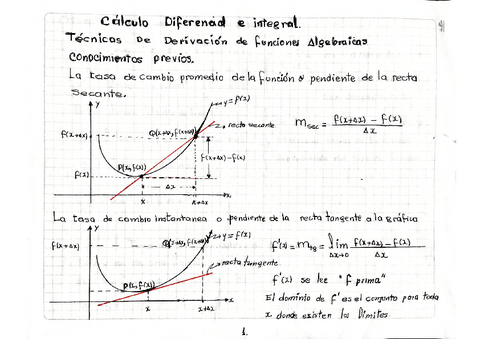 Cálculo Diferencial e integral.
Técnicas De Derivación de funciones Algebraicas
Conocimientos previos.
La tasa de cambio promedio de la función o pendiente de la recta
Secante.
y
y=f(x)
Q(x+Δx, f(x+Δx))
recta secante
f(x+Δx)
f(x+Δx)-f(x)
P(x, f(x))
f(x)
Δx
x
x+Δx
x
m sec = f(x+Δx) - f(x) / Δx
La tasa de cambio instantanea o pendiente de la recta tangente a la gráfica
y
y=f(x)
f(x+Δx)
Q(x+Δx, f(x+Δx))
recta tangente
P(x, f(x))
x
x+Δx
x
f'(x) = m tg = lim Δx→0 f(x+Δx) - f(x) / Δx
f'(x) se lee "f prima"
El dominio de f' es el conjunto para toda
x donde existen los límites
1.